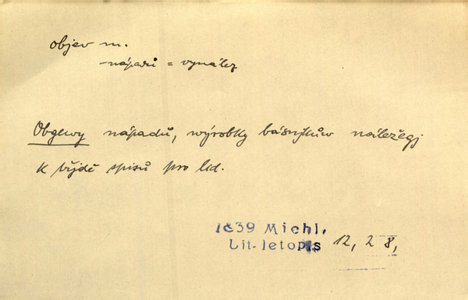 objev m.
-nápadů = vynálezy
Obgewy nápadů, wýrobky básnjkůw náležegj
k třjdě spisů pro lid.
1839 Michl,
Lit-letopis 12, 28,